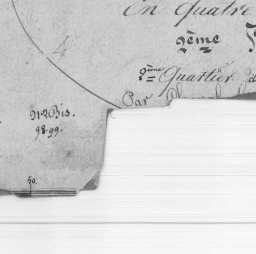 En quatre
2ème
4
2ème Quartier d
Par
91-2 Bis.
98-99.
50